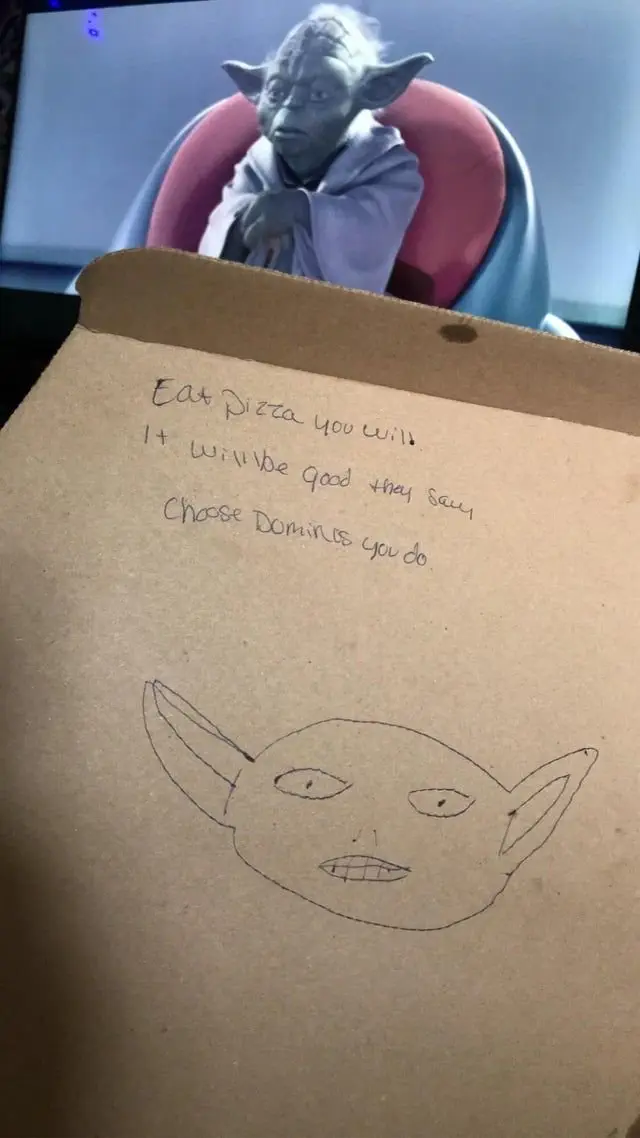 Eat Pizza you will.
It will be good they say
Choose Dominos you do.